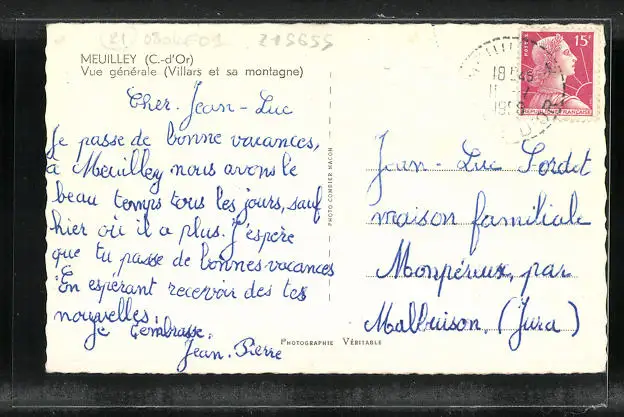 (21) 0804E01 219655
MEUILLEY (C.-d'Or)
Vue générale (Villars et sa montagne)
Cher Jean-Luc
Je passe de bonne vacances,
a Meuilley nous avons le
beau temps tous les jours, sauf
hier où il a plus. J'espère
que tu passe de bonnes vacances
En espérant recevoir des tes
nouvelles.
Je t'embrasse.
Jean-Pierre
PHOTO COMBIER MACON
PHOTOGRAPHIE VÉRITABLE
POSTES
15F
REPUBLIQUE FRANÇAISE
18 H 45
1958
Jean-Luc Sordet
maison familiale
Monpéreux, par
Malbuison, (Jura)